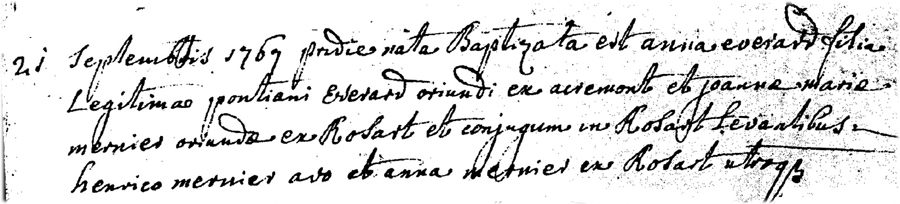 21 Septembris 1767 pridie nata Baptizata est anna everard filia
Legitimae pontiani Everard oriundi ex acremont et joannae mariae
mernier oriundae ex Rosart et conjugum in Rosart Levantibus
henrico mernier avo et anna mernier ex Rosart utroqß